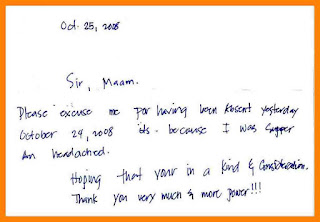 Oct. 25, 2008
Sir, Maam.
Please excuse me for having been Absent yesterday
October 24, 2008 because I was supper
an headached.
Hoping that your in a kind & Consideration.
Thank you very much & more power!!!